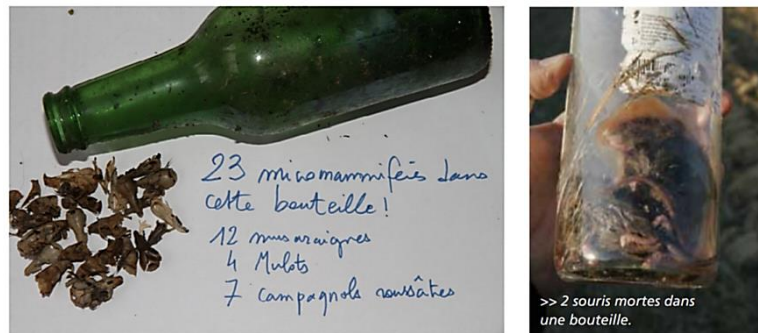 23 micromammifères dans
cette bouteille!
12 musaraignes
4 Mulots
7 campagnols roussâtres
>> 2 souris mortes dans
une bouteille.